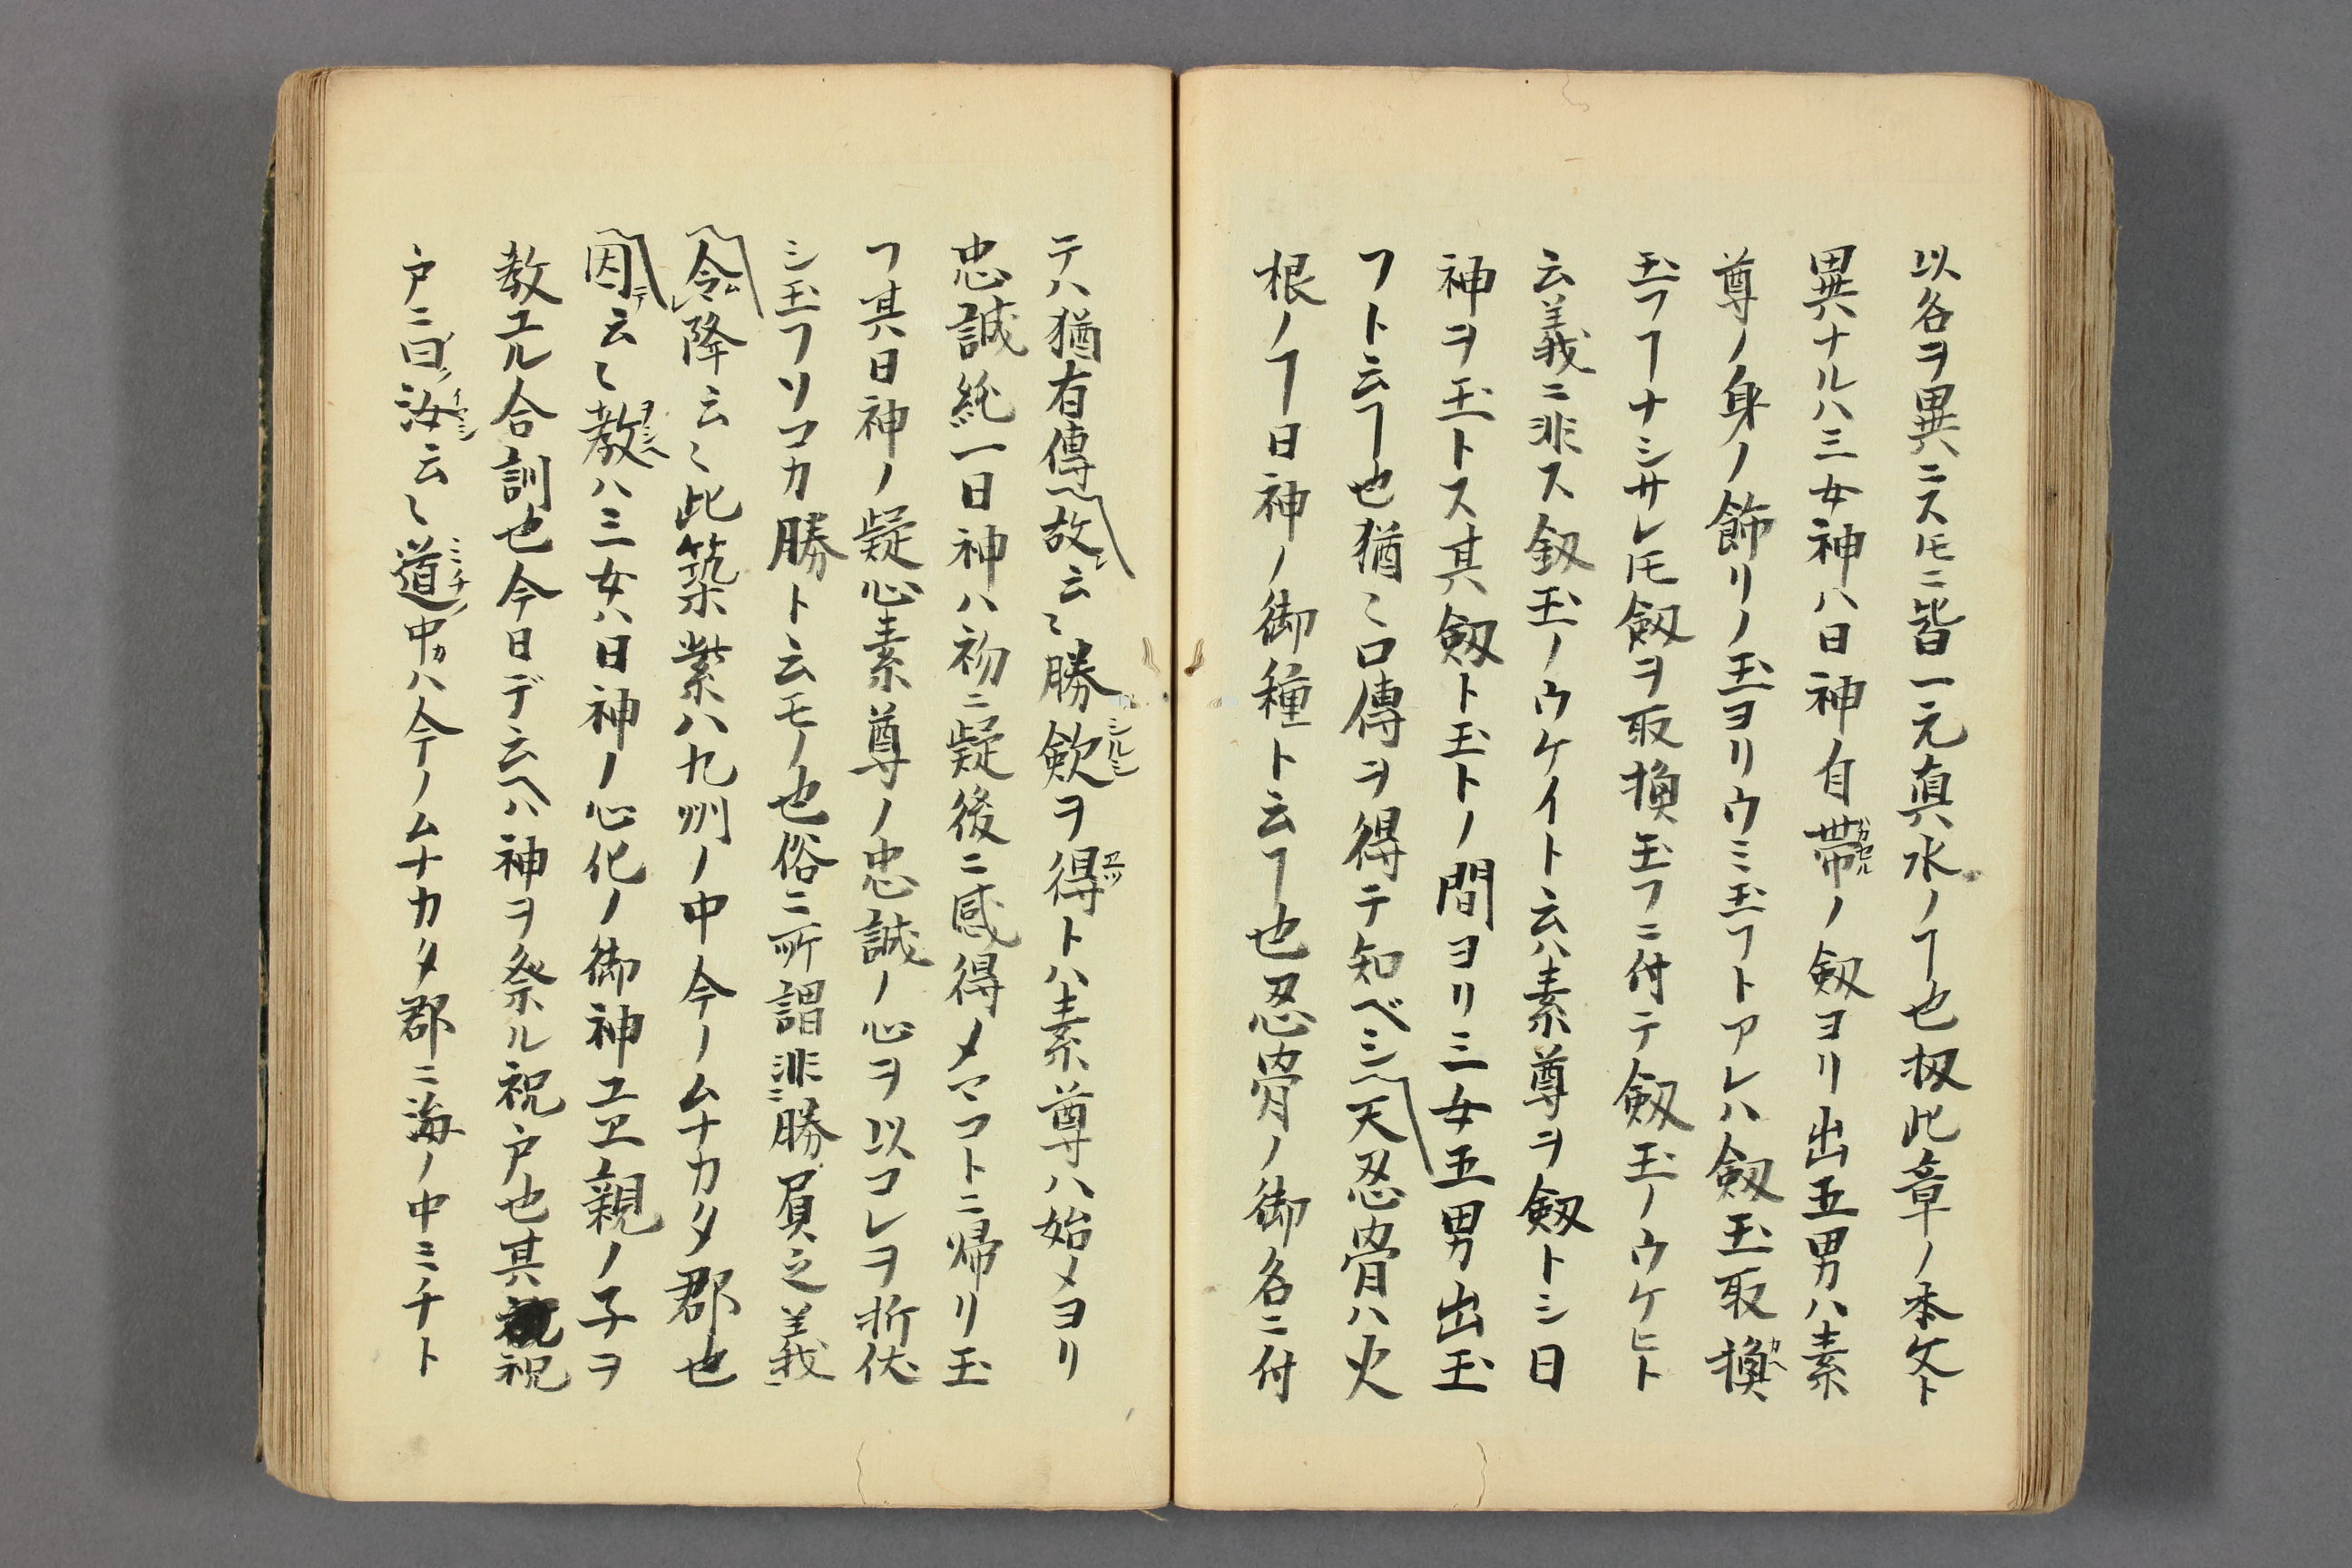 以各ヲ異ニスレ𪜈ニ皆一元真水ノヿ也扨此章ノ本文ト
異ナルハ三女神ハ日神自帯ハカセルノ劔ヨリ出五男ハ素
尊ノ身ノ飾リノ玉ヨリウミ玉フトアレハ劔玉取換カヘ
玉フヿナシサレ𪜈劔ヲ取換玉フニ付テ劔玉ノウケヒト
云義ニ非ス劔玉ノウケイト云ハ素尊ヲ劔トシ日
神ヲ玉トス其劔ト玉トノ間ヨリ三女五男出玉
フト云ヿ也猶〻口傳ヲ得テ知ベシ天忍骨ハ火
根ノヿ日神ノ御種ト云ヿ也忍骨ノ御名ニ付
テハ猶有傳故云〻勝欵シルシヲ得エツトハ素尊ハ始メヨリ
忠誠純一日神ハ初ニ疑後ニ感得メマコトニ帰リ玉
フ其日神ノ疑心素尊ノ忠誠ノ心ヲ以コレヲ折伏
シ玉フソコカ勝ト云モノ也俗ニ所謂非勝負之義
令ム降云〻此築紫ハ九州ノ中今ノムナカタ郡也
因テ云〻教ハ三女ハ日神ノ心化ノ御神ユヱ親ノ子ヲ
教エル合訓也今日デ云ヘハ神ヲ祭ル祝戸也其祝
戸ニ曰汝イマシ云〻道ミチノ中カハ今ノムナカタ郡ニ海ノ中ミチト